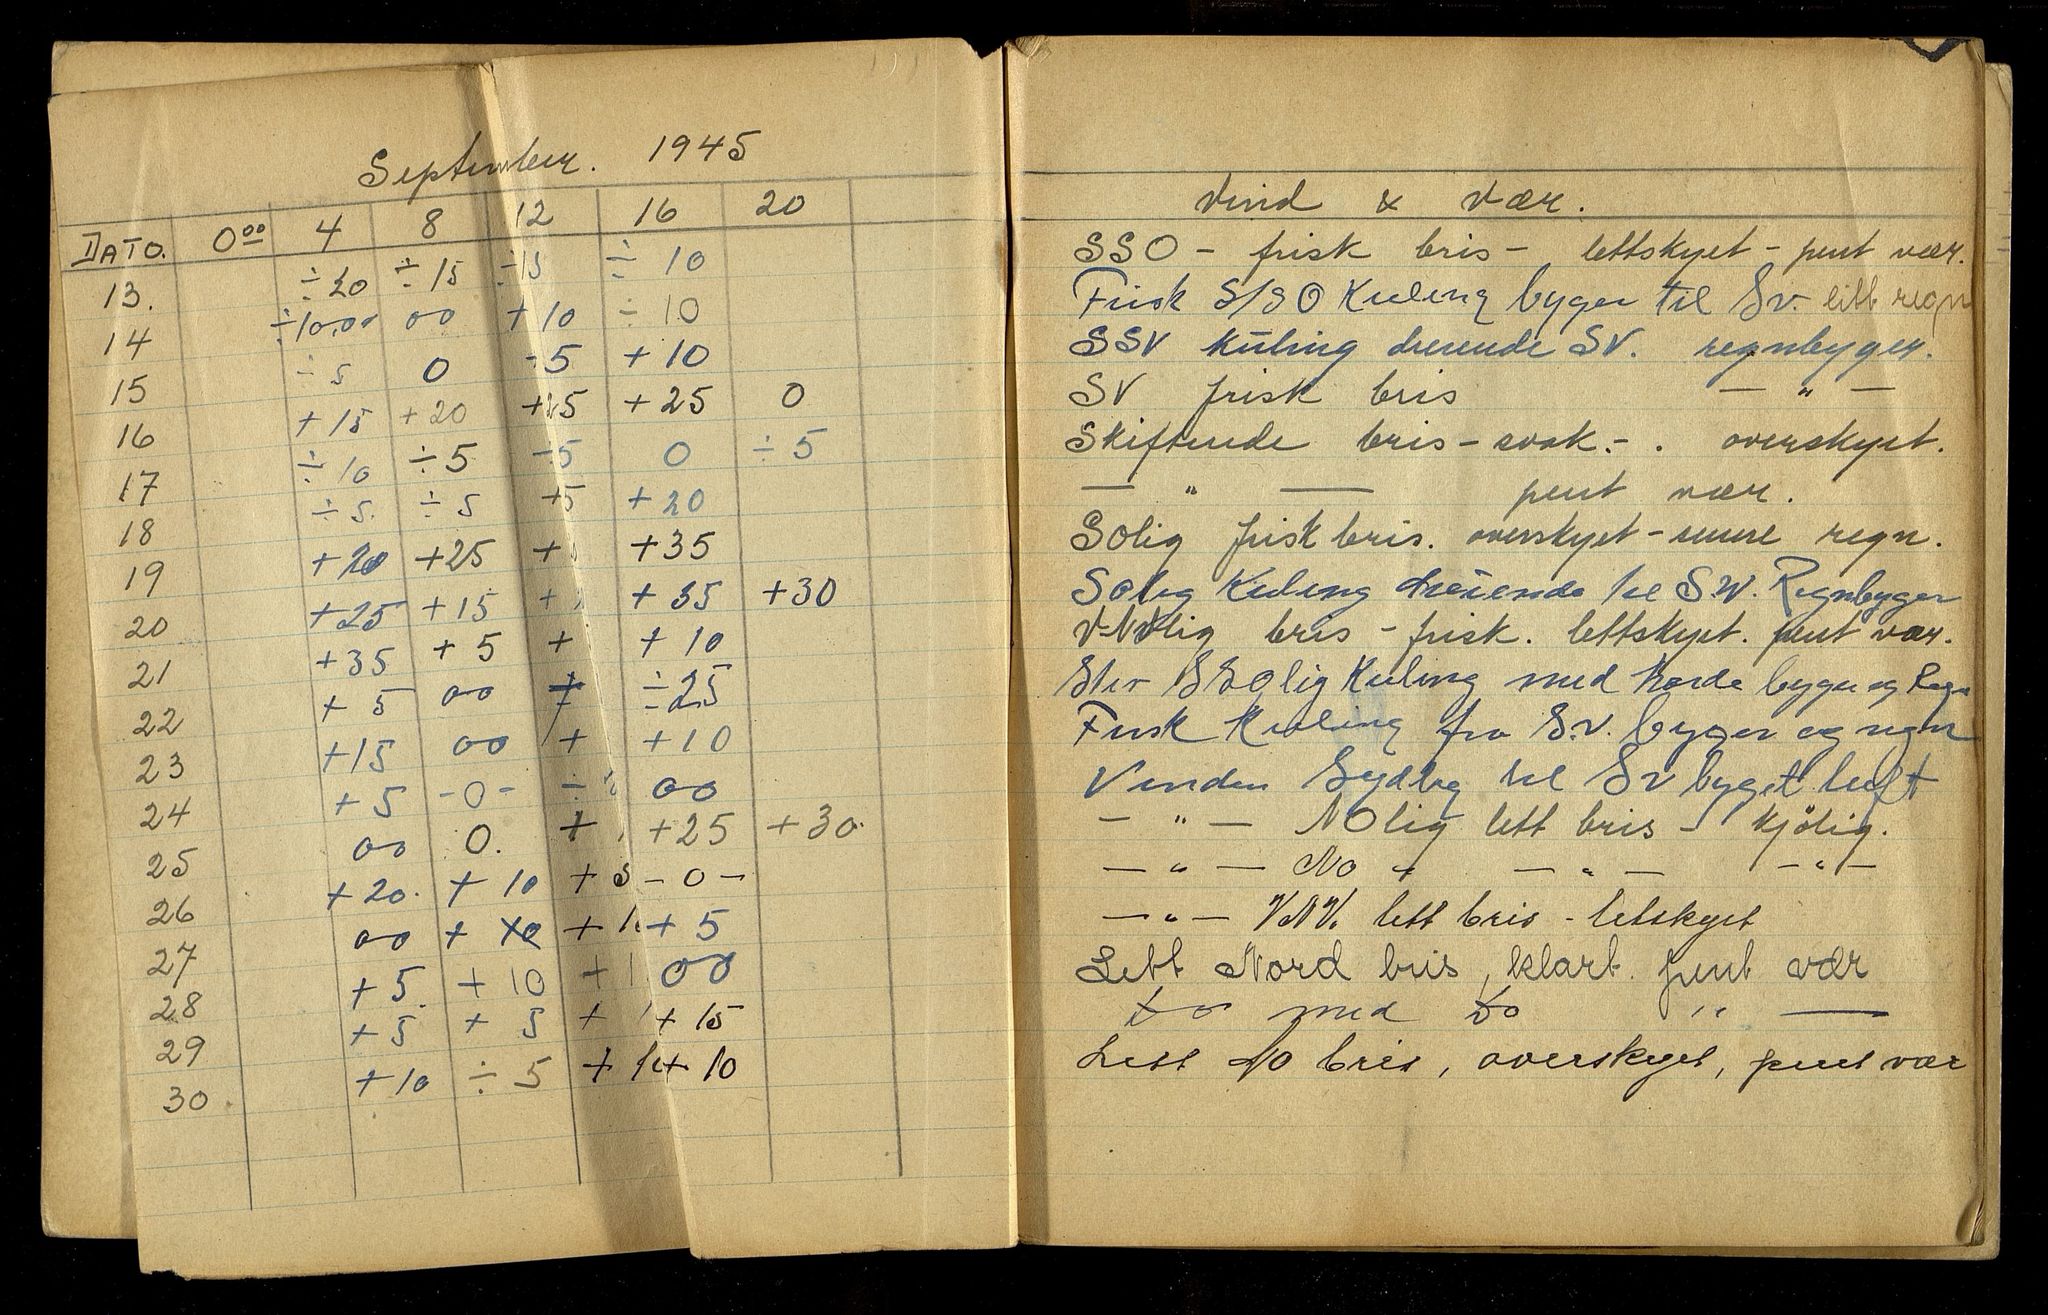 September. 1945
DATO. 0⁰⁰ 4 8 12 16 20
13. ÷20 ÷15 ÷15 ÷10
14 ÷10.00 00 +10 ÷10
15 ÷5 0 -5 +10
16 +15 +20 +25 +25 0
17 ÷10 ÷5 ÷5 0 ÷5
18 ÷5. ÷5 +5 +20
19 +20 +25 + +35
20 +25 +15 + +35 +30
21 +35 +5 + +10
22 +5 00 ÷25
23 +15 00 + +10
24 +5 -0- ÷ 00
25 00 0. + +25 +30.
26 +20. +10 + -0-
27 00 + + +5
28 +5. +10 + 00
29 +5 +5 + +15
30. +10 ÷5 + +10
Vind & Vær.
SSO - frisk bris - lettskyet - pent vær.
Frisk S/SO Kuling byger til Sv. litt regn
SSV kuling dreiende SV. regnbyger.
SV frisk bris — " —
Skiftende bris - svak. - . overskyet.
— " — pent vær.
SOlig frisk bris. overskyet - regn.
SOlig Kuling dreiende til S.W. Regnbyger
V-NVlig bris - frisk. lettskyet. pent vær.
Stiv SSOlig Kuling med harde byger og Regn
Frisk Kuling fra S.V. byger og regn
Vinden Sydlig til SV byget luft
— " — NOlig lett bris - kjölig.
— " — NO " — " — — " —
— " — VNV. lett bris - letskyet
Lett Nord bris, klart. pent vær
do med do " —
Lett NO bris, overskyet, pent vær